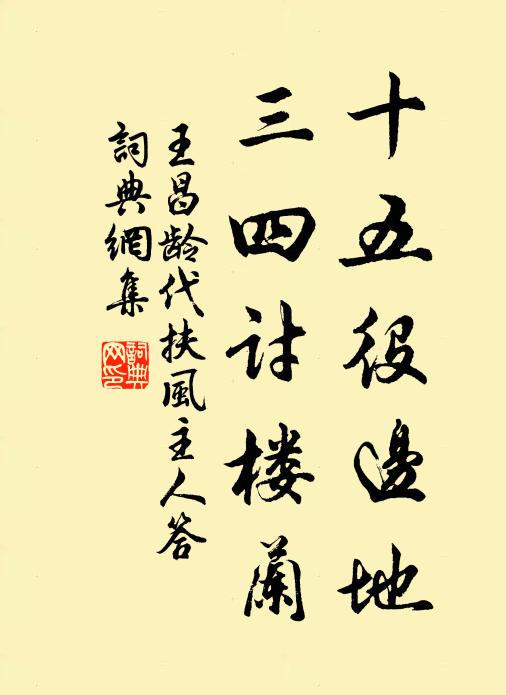 十五役邊地
三四讨楼蘭
王昌龄代扶風主人答
詞典網集
詞典网印